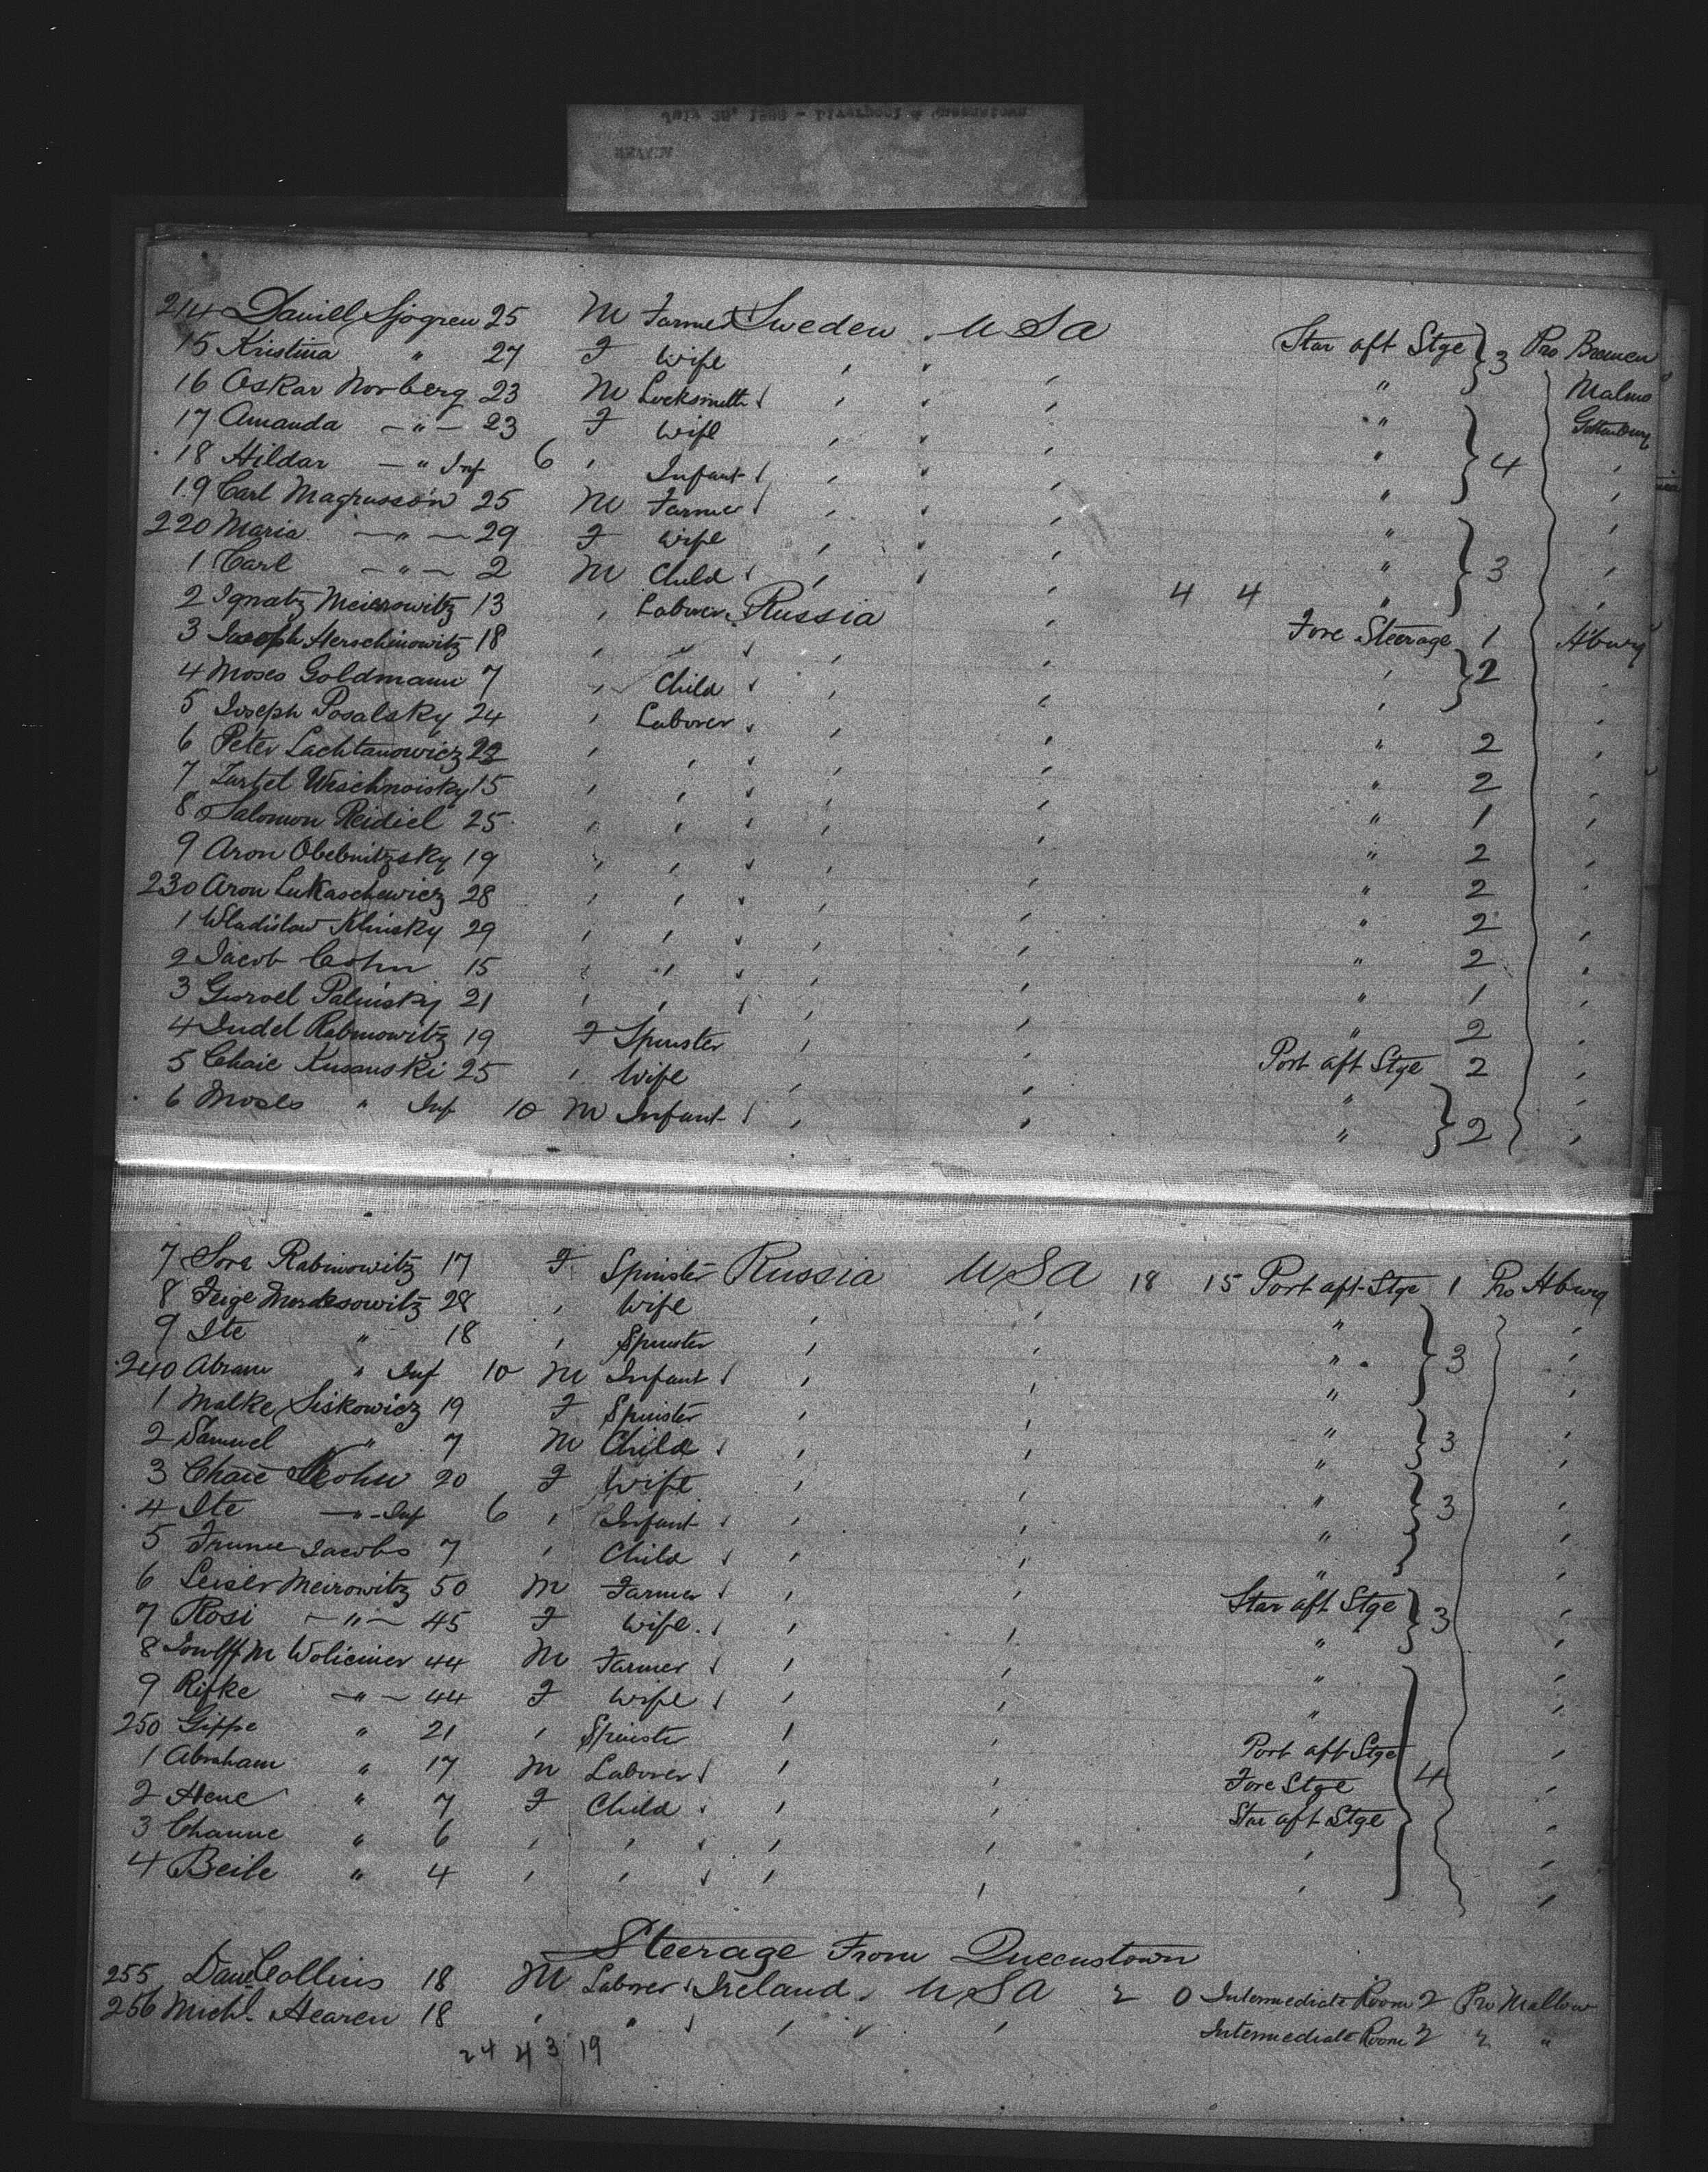 214 Daniell Sjogren 25 M Farmer Sweden USA Star aft Stge 3 Pro Bremen
15 Kristina " 27 F Wife " Malmo
16 Oskar Norberg 23 M Locksmith " Gottenburg
17 Amanda " 23 F Wife "
18 Hildar " Inf 6 " Infant " 4
19 Carl Magnusson 25 M Farmer "
220 Maria " 29 F Wife "
1 Carl " 2 M Child " 3
2 Ignatz Meierowitz 13 " Laborer Russia " 4 4 Fore Steerage 1 Hburg
3 Joseph Herschinowitz 18 " " 2
4 Moses Goldmann 7 " Child "
5 Joseph Posalsky 24 " Laborer " 2
6 Peter Lachtanowicz " " 2
7 Wischnoisky 15 " " 1
8 Salomon Reidiel 25 " " 2
9 Aron Obebnitzsky 19 " " 2
230 Aron Lukaschewicz 28 " " 2
1 Wladislaw Klinsky 29 " " 2
2 Jacob Cohn 15 " " 1
3 Palinsky 21 " " 2
4 Judel Rabinowitz 19 F Spinster Port aft Stge 2
5 Chaie Kusanski 25 " Wife "
6 Moses " Inf 10 M Infant " 2
7 Sore Rabinowitz 17 F Spinster Russia USA 18 15 Port aft Stge 1 Pro Hburg
8 Feige Mordesowitz 28 " Wife "
9 Ite " 18 " Spinster " 3
240 Abram " Inf 10 M Infant "
1 Malke Siskowicz 19 F Spinster "
2 Samuel " 7 M Child " 3
3 Chaie Kohn 20 F Wife "
4 Ite " Inf 6 " Infant " 3
5 Jacobs 7 " Child "
6 Leiser Meirowitz 50 M Farmer Star aft Stge 3
7 Rosi " 45 F Wife "
8 M Woliciner 44 M Farmer "
9 Rifke " 44 F Wife "
250 Gippe " 21 " Spinster Port aft Stge
1 Abraham " 17 M Laborer Fore Stge 4
2 Hene " 7 F Child Star aft Stge
3 Channe " 6 " "
4 Beile " 4 " "
Steerage From Queenstown
255 Danl Collins 18 M Laborer Ireland USA 2 0 Intermediate Room 2 Pro Mallow
256 Michl. Hearen 18 " " Intermediate Room 2 "
24 43 19